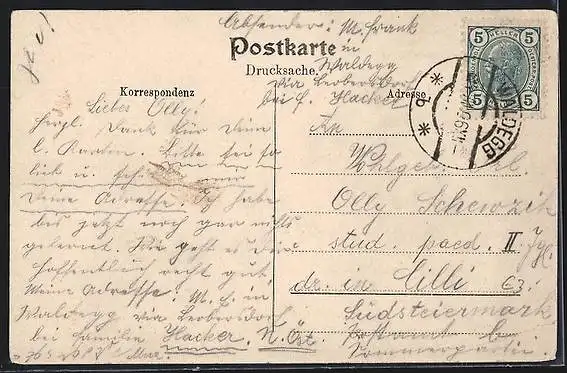 Absender: M. Frank
Postkarte
in
Waldegg
Drucksache.
via Leobersdorf
bei F. Hacker
Korrespondenz
Adresse
Lieber Olly!
Herzl. Dank für Deine
l. Karten. Bitte sei so
lieb u.
Deine Adresse. Ich habe
bis jetzt noch gar nichts
gelernt. Wie geht es Dir
hoffentlich recht gut
Meine Adresse: M. F. in
Waldegg via Leobersdorf
bei Familie Hacker, N. Öst.
An
Wohlgeb.
Olly
stud. paed. II
in Cilli
Südsteiermark
5 HELLER 5
5 5
WALDEGG